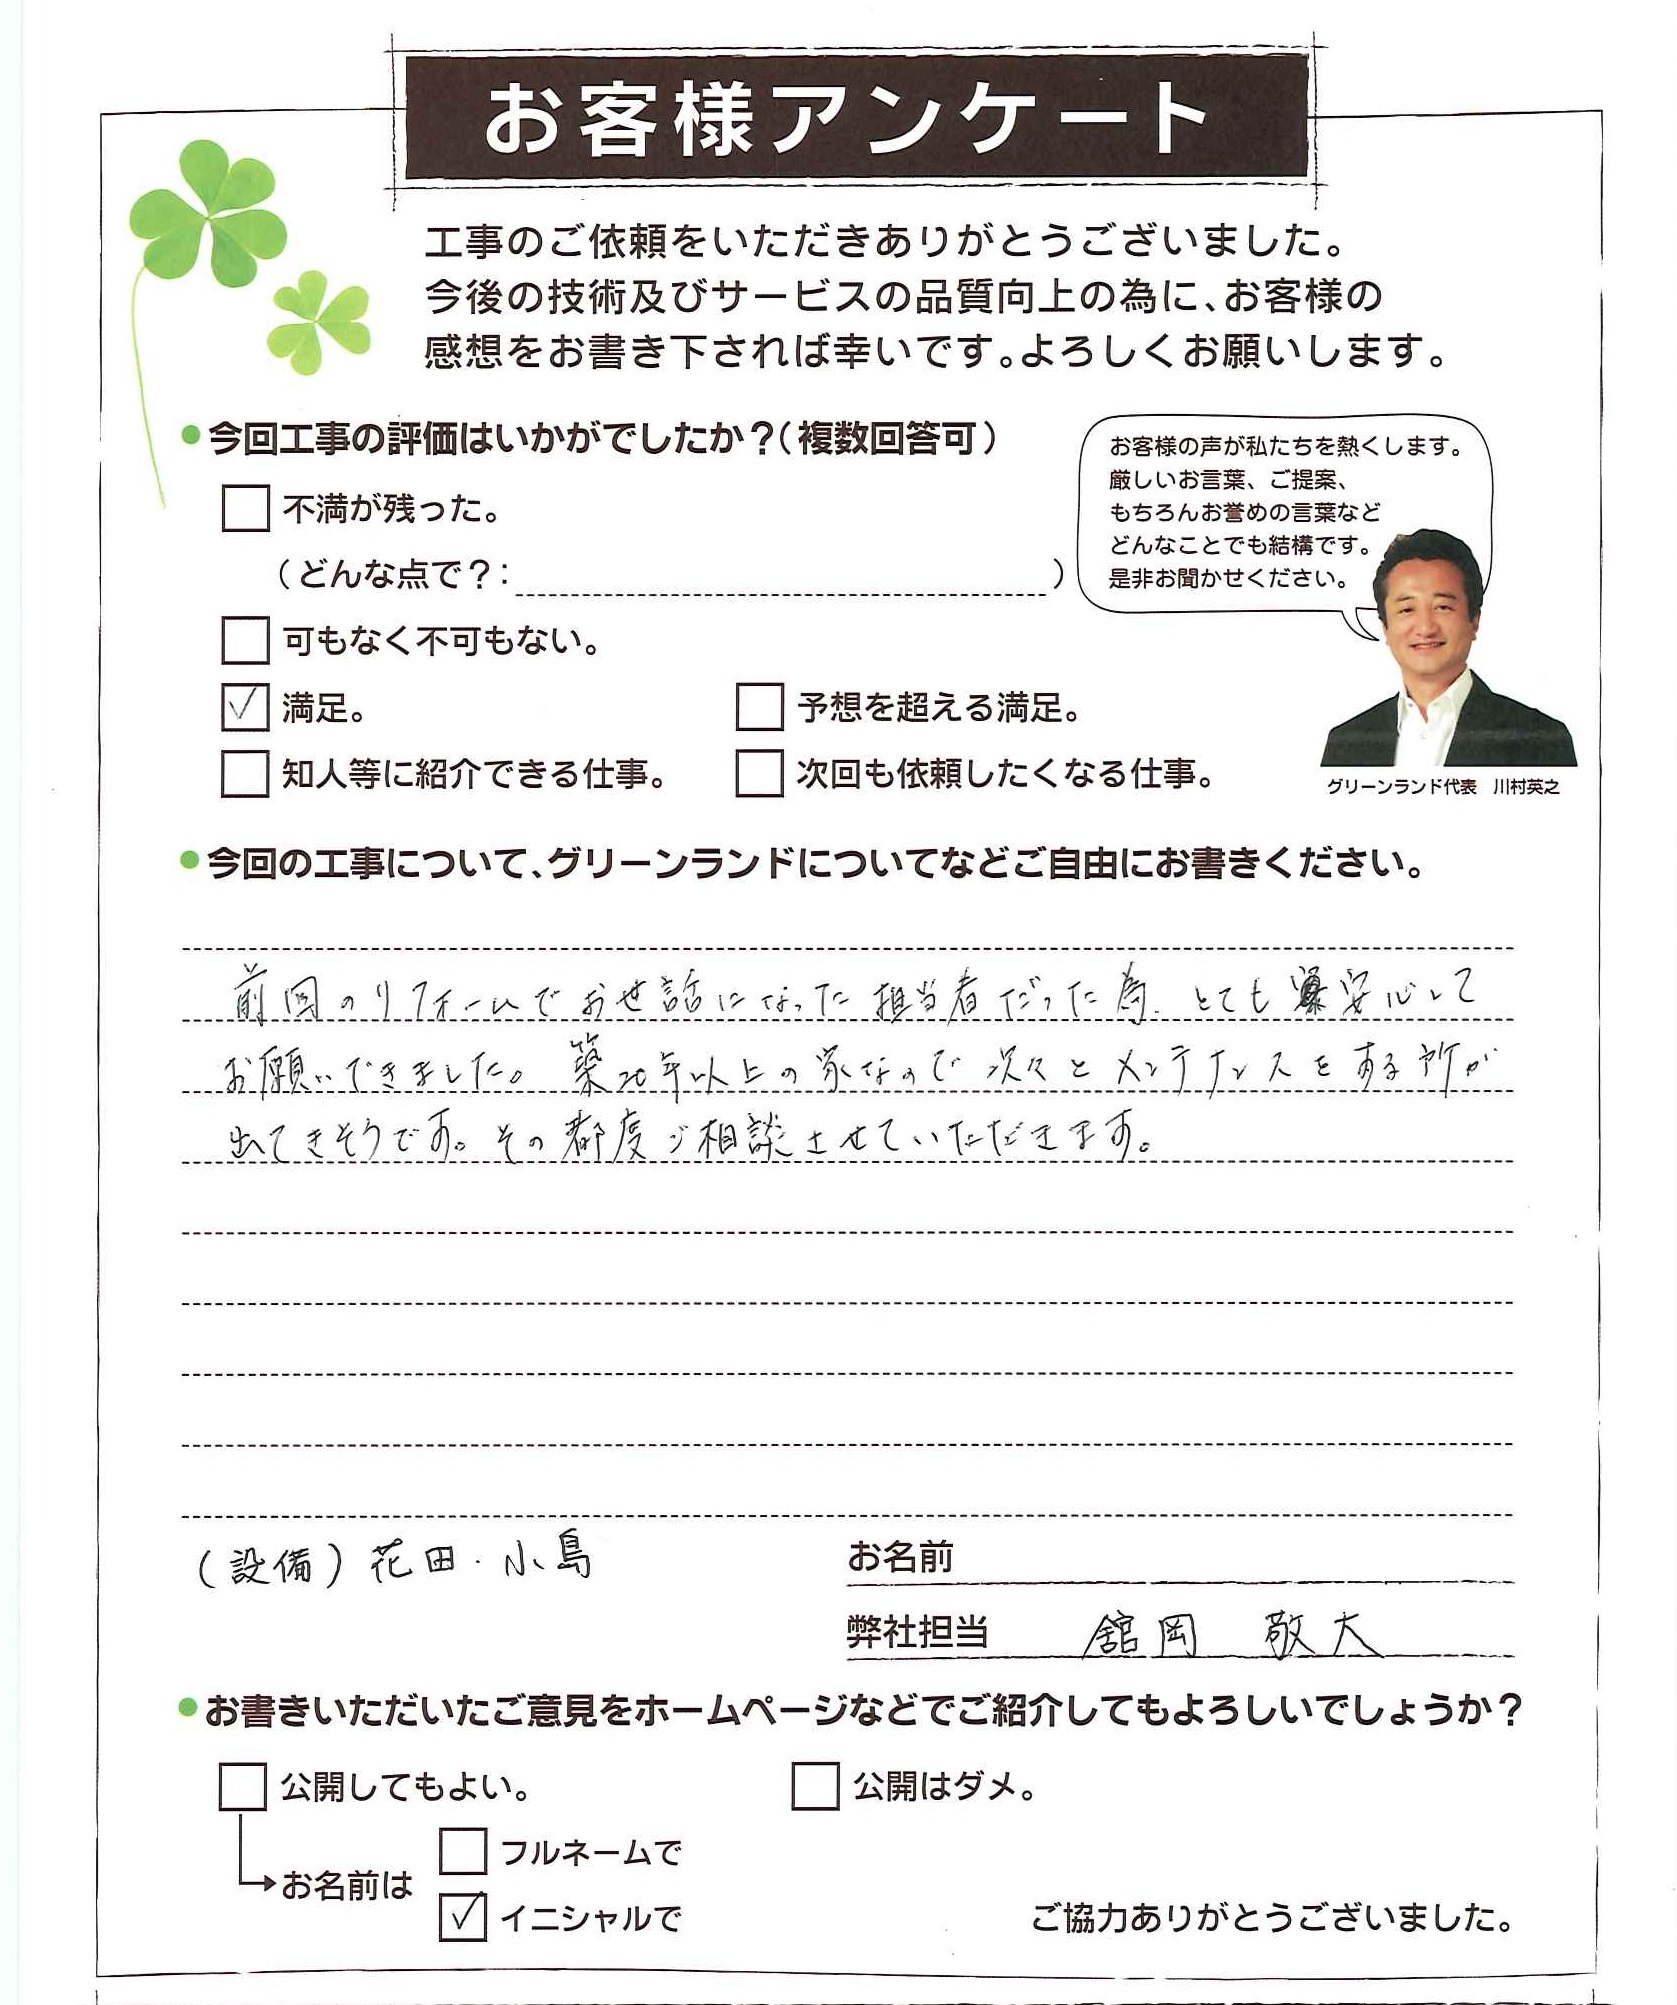 お客様アンケート
工事のご依頼をいただきありがとうございました。
今後の技術及びサービスの品質向上の為に、お客様の
感想をお書き下されば幸いです。よろしくお願いします。
●今回工事の評価はいかがでしたか?(複数回答可)
不満が残った。
(どんな点で?: )
可もなく不可もない。
✓ 満足。
予想を超える満足。
知人等に紹介できる仕事。
次回も依頼したくなる仕事。
お客様の声が私たちを熱くします。
厳しいお言葉、ご提案、
もちろんお誉めの言葉など
どんなことでも結構です。
是非お聞かせください。
グリーンランド代表 川村英之
●今回の工事について、グリーンランドについてなどご自由にお書きください。
前回のリフォームでお世話になった担当者だった為、とても安心して
お願いできました。築20年以上の家なので次々とメンテナンスをする所が
出てきそうです。その都度ご相談させていただきます。
(設備)花田・小島
お名前
弊社担当 舘岡 敬大
●お書きいただいたご意見をホームページなどでご紹介してもよろしいでしょうか?
公開してもよい。
公開はダメ。
お名前は
フルネームで
✓ イニシャルで
ご協力ありがとうございました。